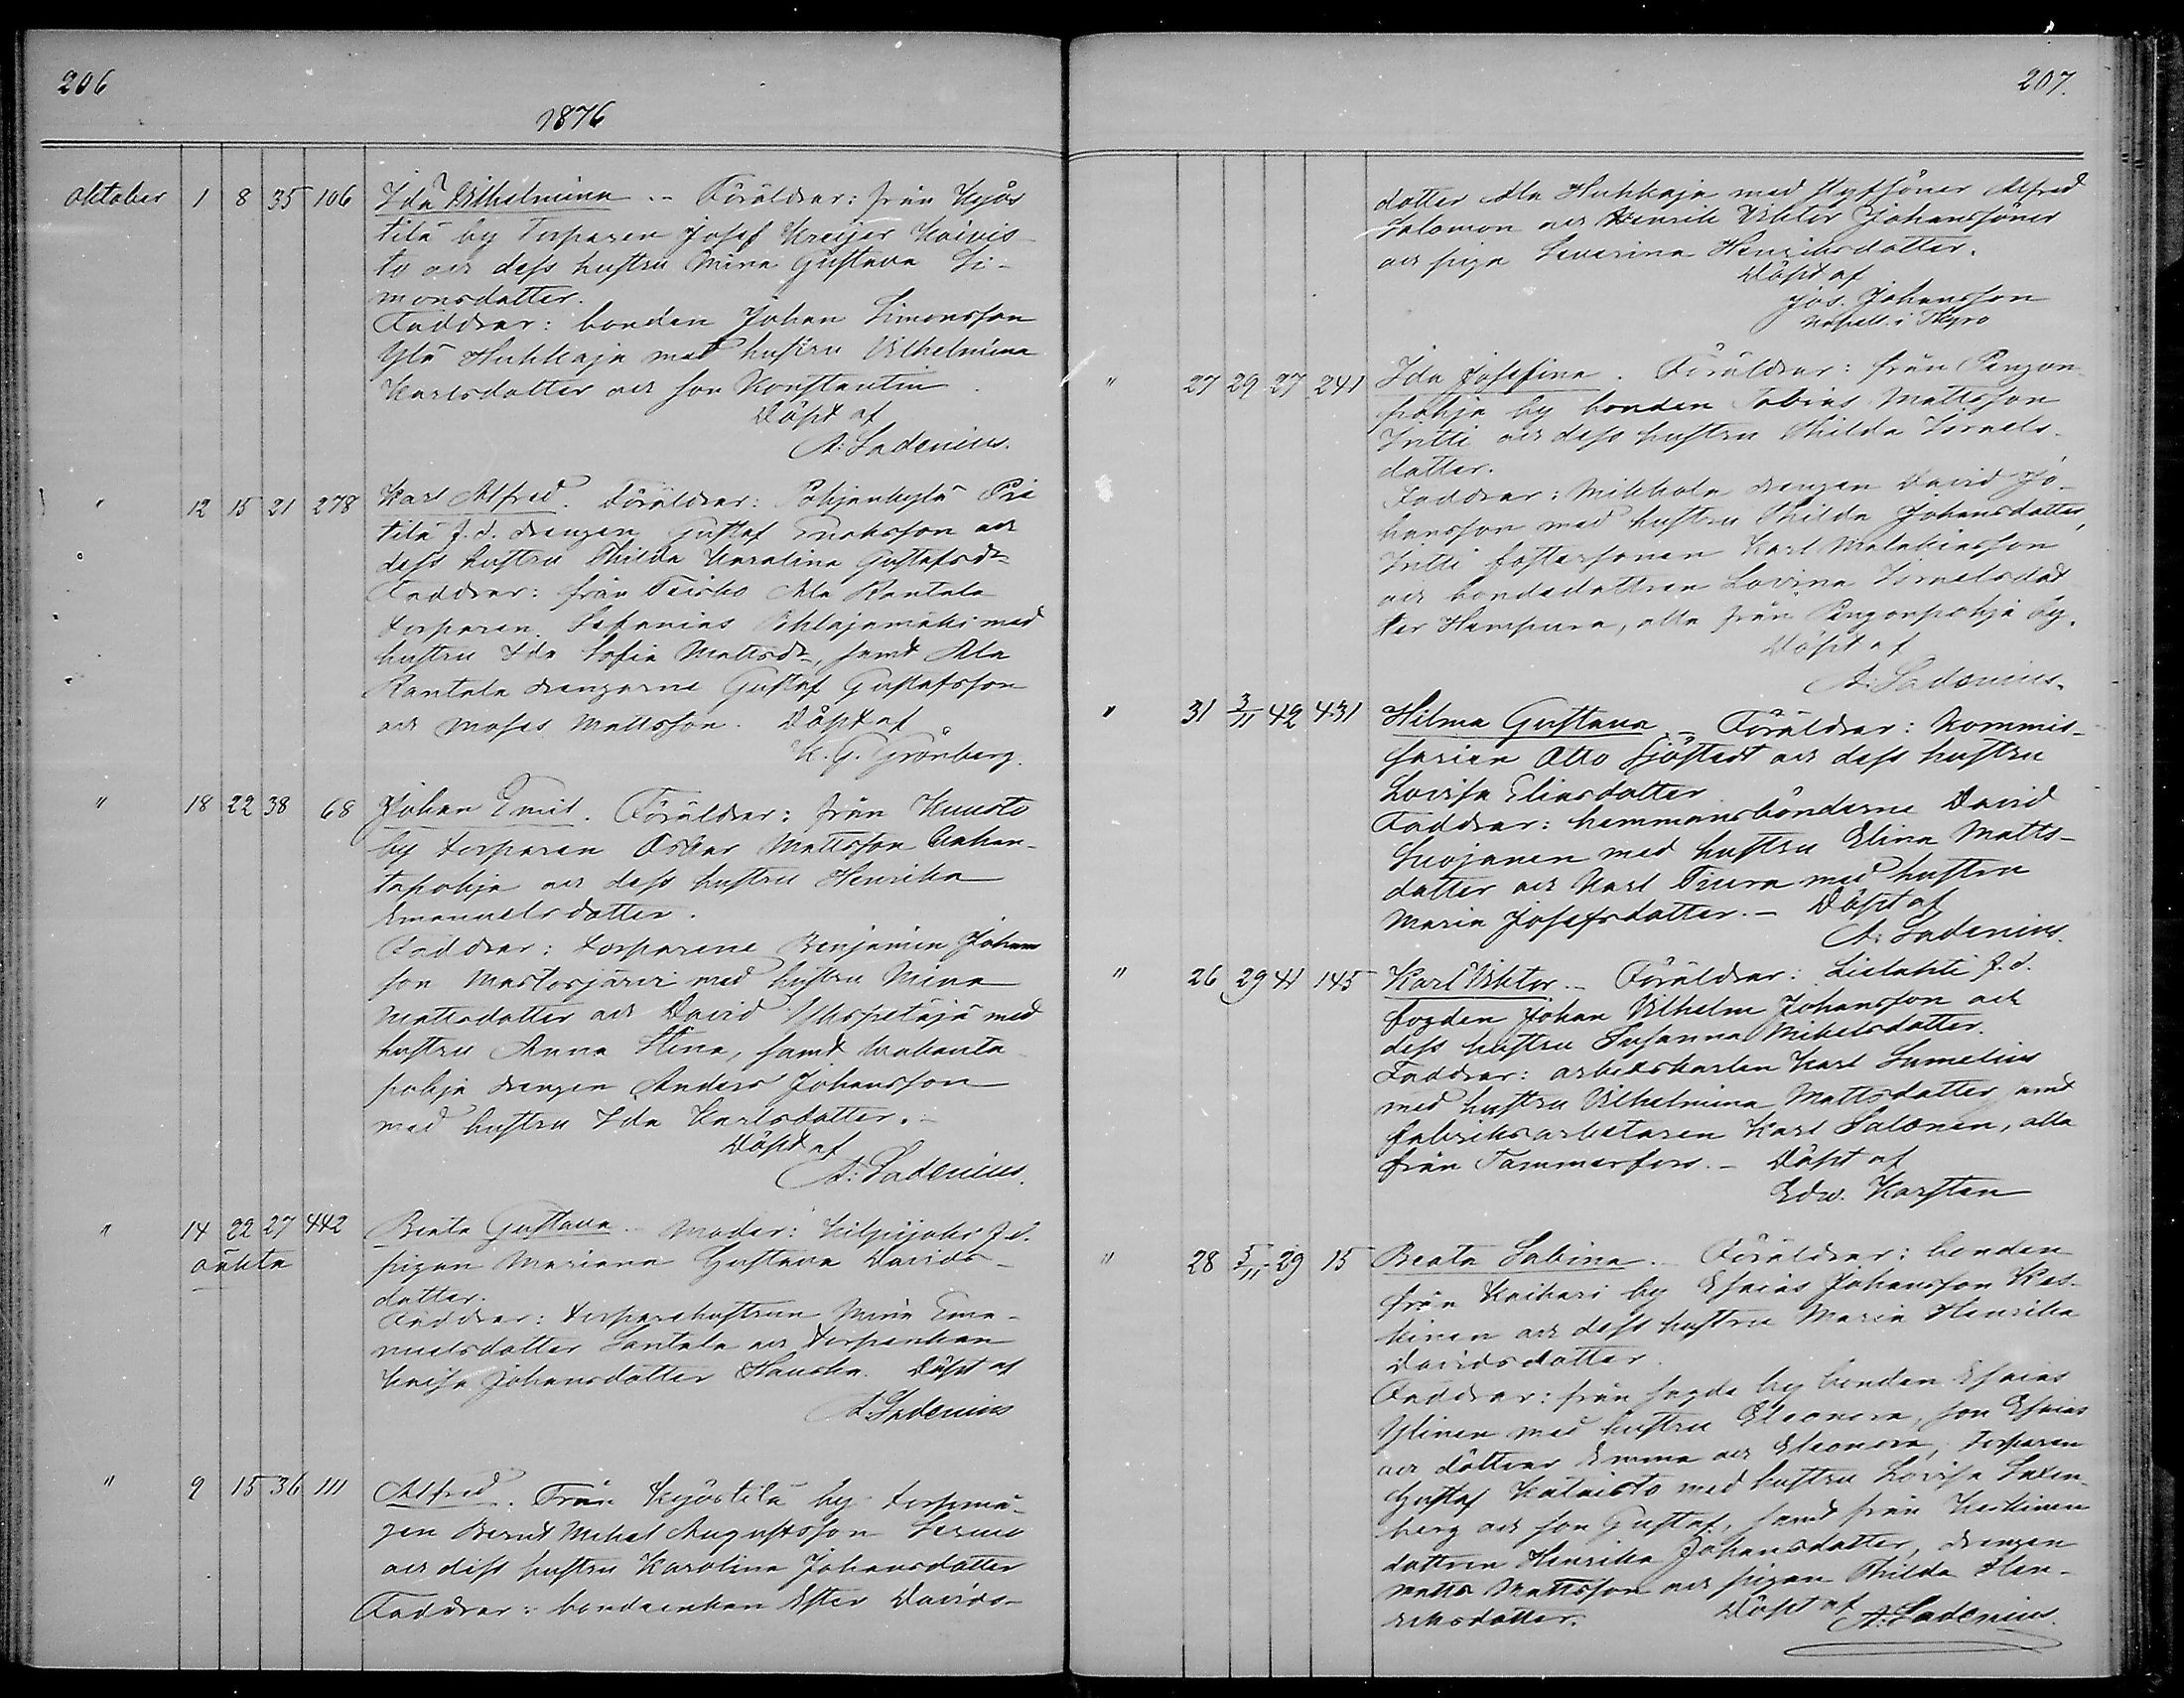 206
1876
Oktober 1 8 35 106 Ida Vilhelmina. – Föräldrar: från Kyös
tilä by Torparen Josef Kreijer Koivis
to och dess hustru Mina Gustava Si-
monsdotter.
Faddrar: bonden Johan Simonsson
Ylä Huhkaja med hustru Vilhelmina
Karlsdotter och son Konstantin.
Döpt af
A: Ladenius.
" 12 15 21 278 Karl Alfred. Föräldrar: Pohjankylä Pie
tilä f.d. drengen Gustaf Enoksson och
dess hustru Thilda Karolina Gustafsdr
Faddrar: från Teisko Ala Rantala
torparen Sefanias Pohlajamäki med
hustru Ida Sofia Mattsdr, samt Ala
Rantala drengarne Gustaf Gustafsson
och Moses Mattsson. Döpt af
K. G. Grönberg.
" 18 22 38 68 Johan Emil. Föräldrar: från Kuusto
by torparen Oskar Mattsson Vahan-
tapohja och dess hustru Henrika
Emanuelsdotter.
Faddrar: torparene Benjamin Johans
son Mastosjärvi med hustru Mina
Mattsdotter och David Yhspetäjä med
hustru Anna Stina, samt Vahanta
pohja drengen Anders Johansson
med hustru Ida Karlsdotter. –
Döpt af
A: Ladenius.
" 14 22 27 442 Beata Gustava. – Moder: Kilpijoki f.d.
oäkta pigan Mariana Gustava Davids-
dotter.
Faddrar: torparehustrun Mina Ema-
nuelsdotter Santala och torpenkan
Kaisa Johansdotter Hauska. Döpt af
A: Ladenius
" 9 15 36 111 Alfred. Från Kyöstilä by torpmå-
gen Bernt Mikel Augustsson Sarme
och dess hustru Karolina Johansdotter
Faddrar: bondeenkan Ester Davids-
207.
dotter Ala Huhkaja med styfsöner Alfred
Salomon och Henrik Viktor Johanssöner
och piga Severina Henriksdotter.
Döpt af
Jos. Johansson
kapell. i Kyro
" 27 29 27 241 Ida Josefina. Föräldrar: från Pengon
pohja by bonden Tobias Mattsson
Iritti och dess hustru Thilda Israels-
dotter.
Faddrar: Mikkola drengen David Jo-
hansson med hustru Thilda Johansdotter,
Iritti fostersonen Karl Malakiasson
och bondedottren Lovina Israelsdot
ter Hempura, alla från Pengonpohja by.
Döpt af
A: Ladenius.
" 31 3/11 42 431 Hilma Gustava. – Föräldrar: Kommis-
sarien Otto Sjöstedt och dess hustru
Lovisa Eliasdotter
Faddrar: hemmansbönderne David
Suojanen med hustru Elina Matts-
dotter och Karl Tiura med hustru
Maria Josefsdotter. – Döpt af
A: Ladenius.
" 26 29 41 145 Karl Viktor. – Föräldrar: Lielahti f.d.
fogden Johan Vilhelm Johansson och
dess hustru Susanna Mikelsdotter.
Faddrar: arbetskarlen Karl Sumelius
med hustru Vilhelmina Mattsdotter samt
fabriksarbetaren Karl Salonen, alla
från Tammerfors. – Döpt af
Edw. Karsten
" 28 5/11 29 15 Beata Sabina. – Föräldrar: bonden
från Kaihari by Esaias Johansson Kes-
kinen och dess hustru Maria Henrika
Davidsdotter.
Faddrar: från sagde by bonden Esaias
Ylinen med hustru Eleonora, son Esaias
och döttrar Emma och Eleonora, torparen
Gustaf Kataisto med hustru Lovisa Salen-
berg och son Gustaf, samt från Keskinen
dottren Henrika Johansdotter, drengen
Matts Mattsson och pigan Thilda Hen-
riksdotter. Döpt af
A: Ladenius.